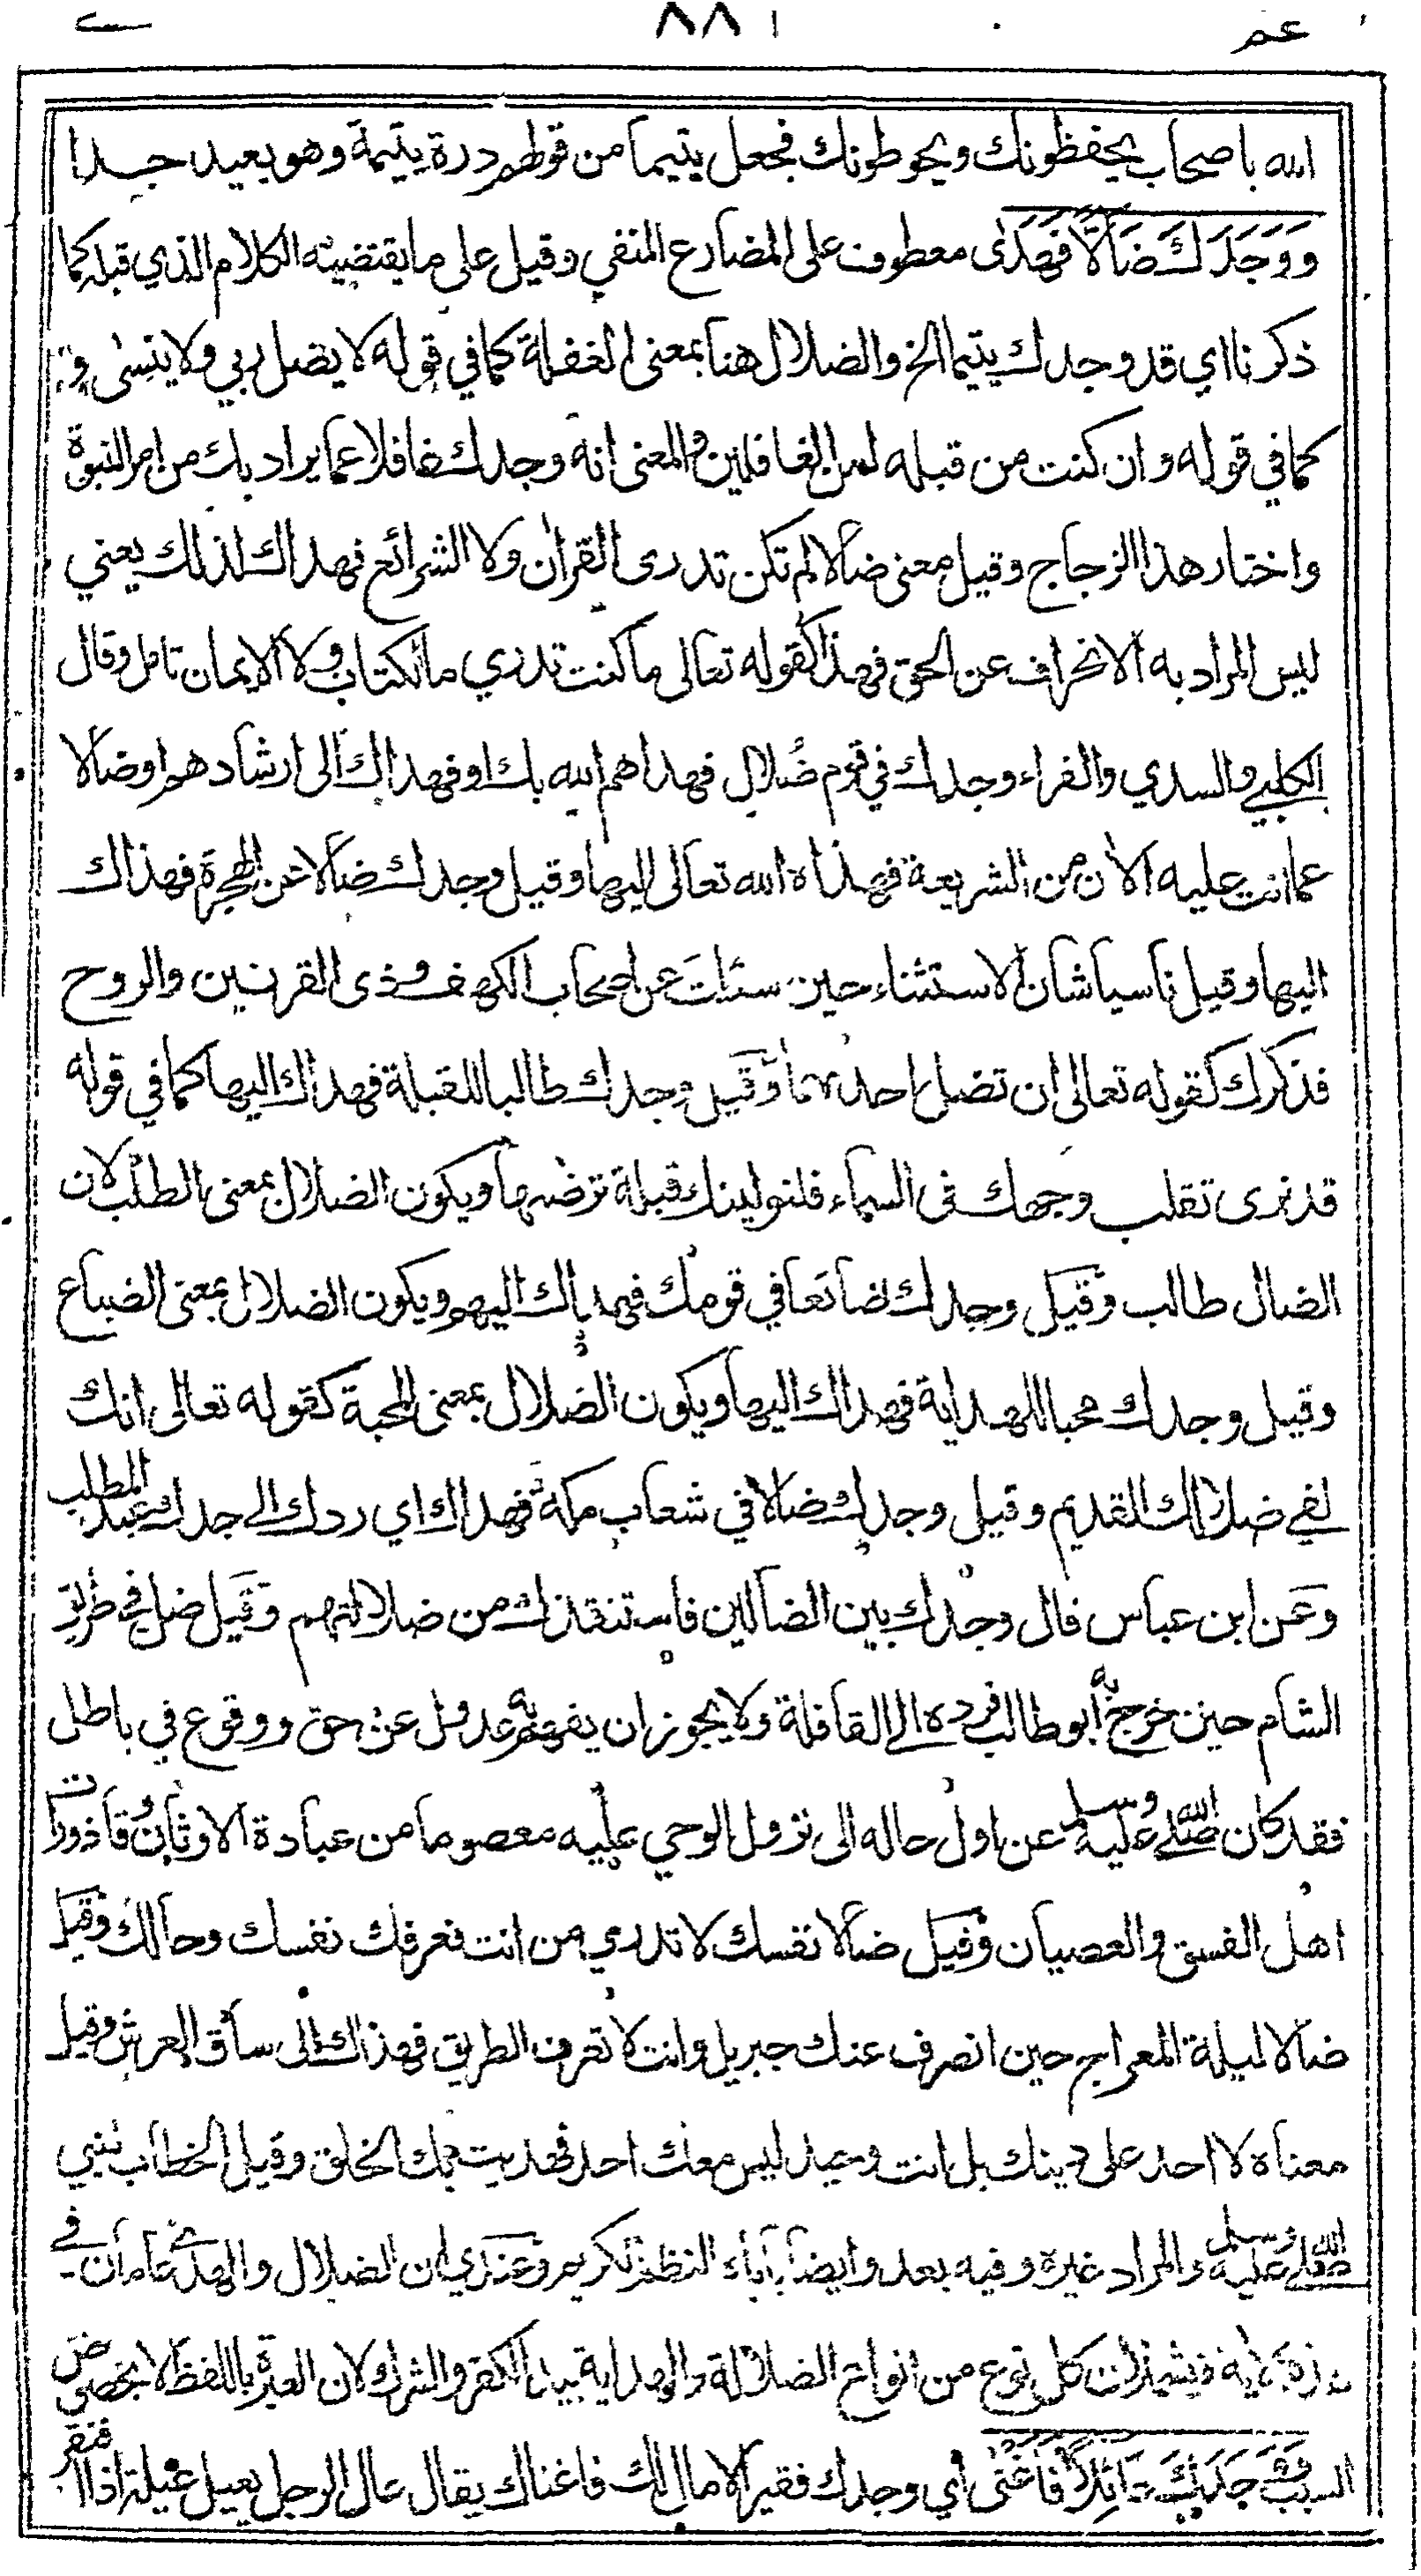 عم ٨٨١
الله باصحاب يحفظونك ويحوطونك فجعل يتيما من قولهم درة يتيمة وهو بعيد جدا
وَوَجَدَكَ ضَالًّا فَهَدٰى معطوف على المضارع المنفي وقيل على ما يقتضيه الكلام الذي قبله كما
ذكرنا اي قد وجدك يتيما الخ والضلال هنا بمعنى الغفلة كما في قوله لا يضل ربي ولا ينسى و
كما في قوله وان كنت من قبله لمن الغافلين والمعنى انه وجدك غافلا عما يراد بك من امر النبوة
واختار هذا الزجاج وقيل معنى ضالا لم تكن تدرى القرآن ولا الشرائع فهداك لذلك يعني
ليس المراد به الانحراف عن الحق فهذا كقوله تعالى ما كنت تدري ما الكتاب ولا الايمان تامل وقال
الكلبي والسدي والفراء وجدك في قوم ضلال فهداهم الله بك او فهداك الى ارشادهم او ضالا
عما انت عليه الآن من الشريعة فهداه الله تعالى اليها وقيل وجدك ضالا عن الهجرة فهذاك
اليها وقيل ناسيا شان الاستثناء حين سئلت عن اصحاب الكهف وذى القرنين والروح
فذكرك كقوله تعالى ان تضل احدىهما وقيل وجدك طالبا للقبلة فهداك اليها كما في قوله
قد نرى تقلب وجهك فى السماء فلنولينك قبلة ترضىها ويكون الضلال بمعنى الطلب لان
الضال طالب وقيل وجدك ضائعا في قومك فهداك اليهم ويكون الضلال بمعنى الضياع
وقيل وجدك محبا للهداية فهداك اليها ويكون الضلال بمعنى المحبة كقوله تعالى انك
لفي ضلالك القديم وقيل وجدك ضالا في شعاب مكة فهداك اي ردك الى جدك عبد المطلب
وعن ابن عباس قال وجدك بين الضالين فاستنقذك من ضلالتهم وقيل ضل في طريق
الشام حين خرج به ابو طالب فرده الى القافلة ولا يجوز ان يفهم به عدول عن حق ووقوع في باطل
فقد كان صلى الله عليه وسلم عن اول حاله الى نزول الوحي عليه معصوما من عبادة الاوثان وقاذورات
اهل الفسق والعصيان وقيل ضالا نفسك لا تدري من انت فعرفك نفسك وحالك وقيل
ضالا ليلة المعراج حين انصرف عنك جبريل وانت لا تعرف الطريق فهذاك الى ساق العرش وقيل
معناه لا احد على دينك بل انت وحيد ليس معك احد فهديت بك الخلق وقيل الخطاب للنبي
صلى الله عليه وسلم والمراد غيره وفيه بعد وايضا ياباه النظم الكريم وعندي ان الضلال والهدى عامان في
الآية فيشملان كل نوع من انواع الضلالة والهداية بيد الكفر والشرك لان العبرة باللفظ لا بخصوص
السبب وَوَجَدَكَ عَائِلًا فَأَغْنٰى أي وجدك فقيرا لا مال لك فاغناك يقال عال الرجل يعيل عيلة اذا افتقر